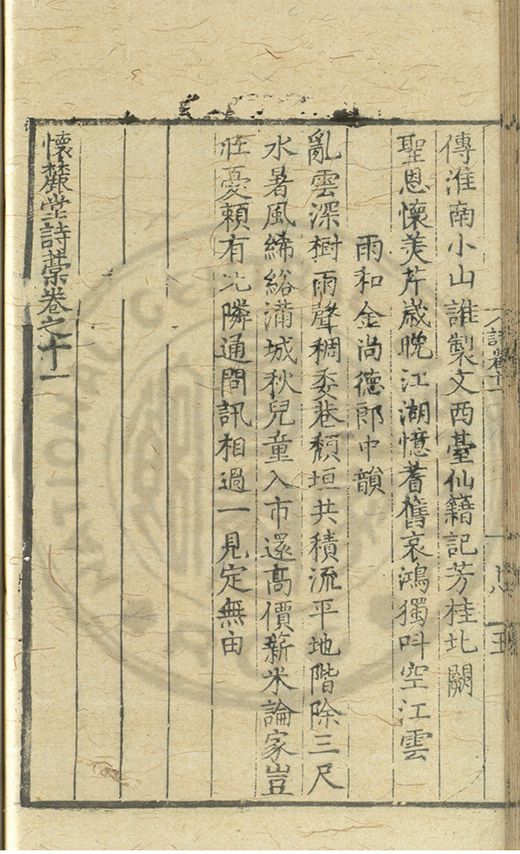 傳淮南小山誰製文西臺仙籍記芳桂北闕
聖恩懷美芹歲晚江湖憶耆舊哀鴻獨叫空江雲
雨和金尚德郎中韻
亂雲深樹雨聲稠委巷頹垣共積流平地階除三尺
水暑風絺綌滿城秋兒童入市還高價薪米論家豈
任憂賴有北隣通問訊相過一見定無由
懷麓堂詩藁卷之十一